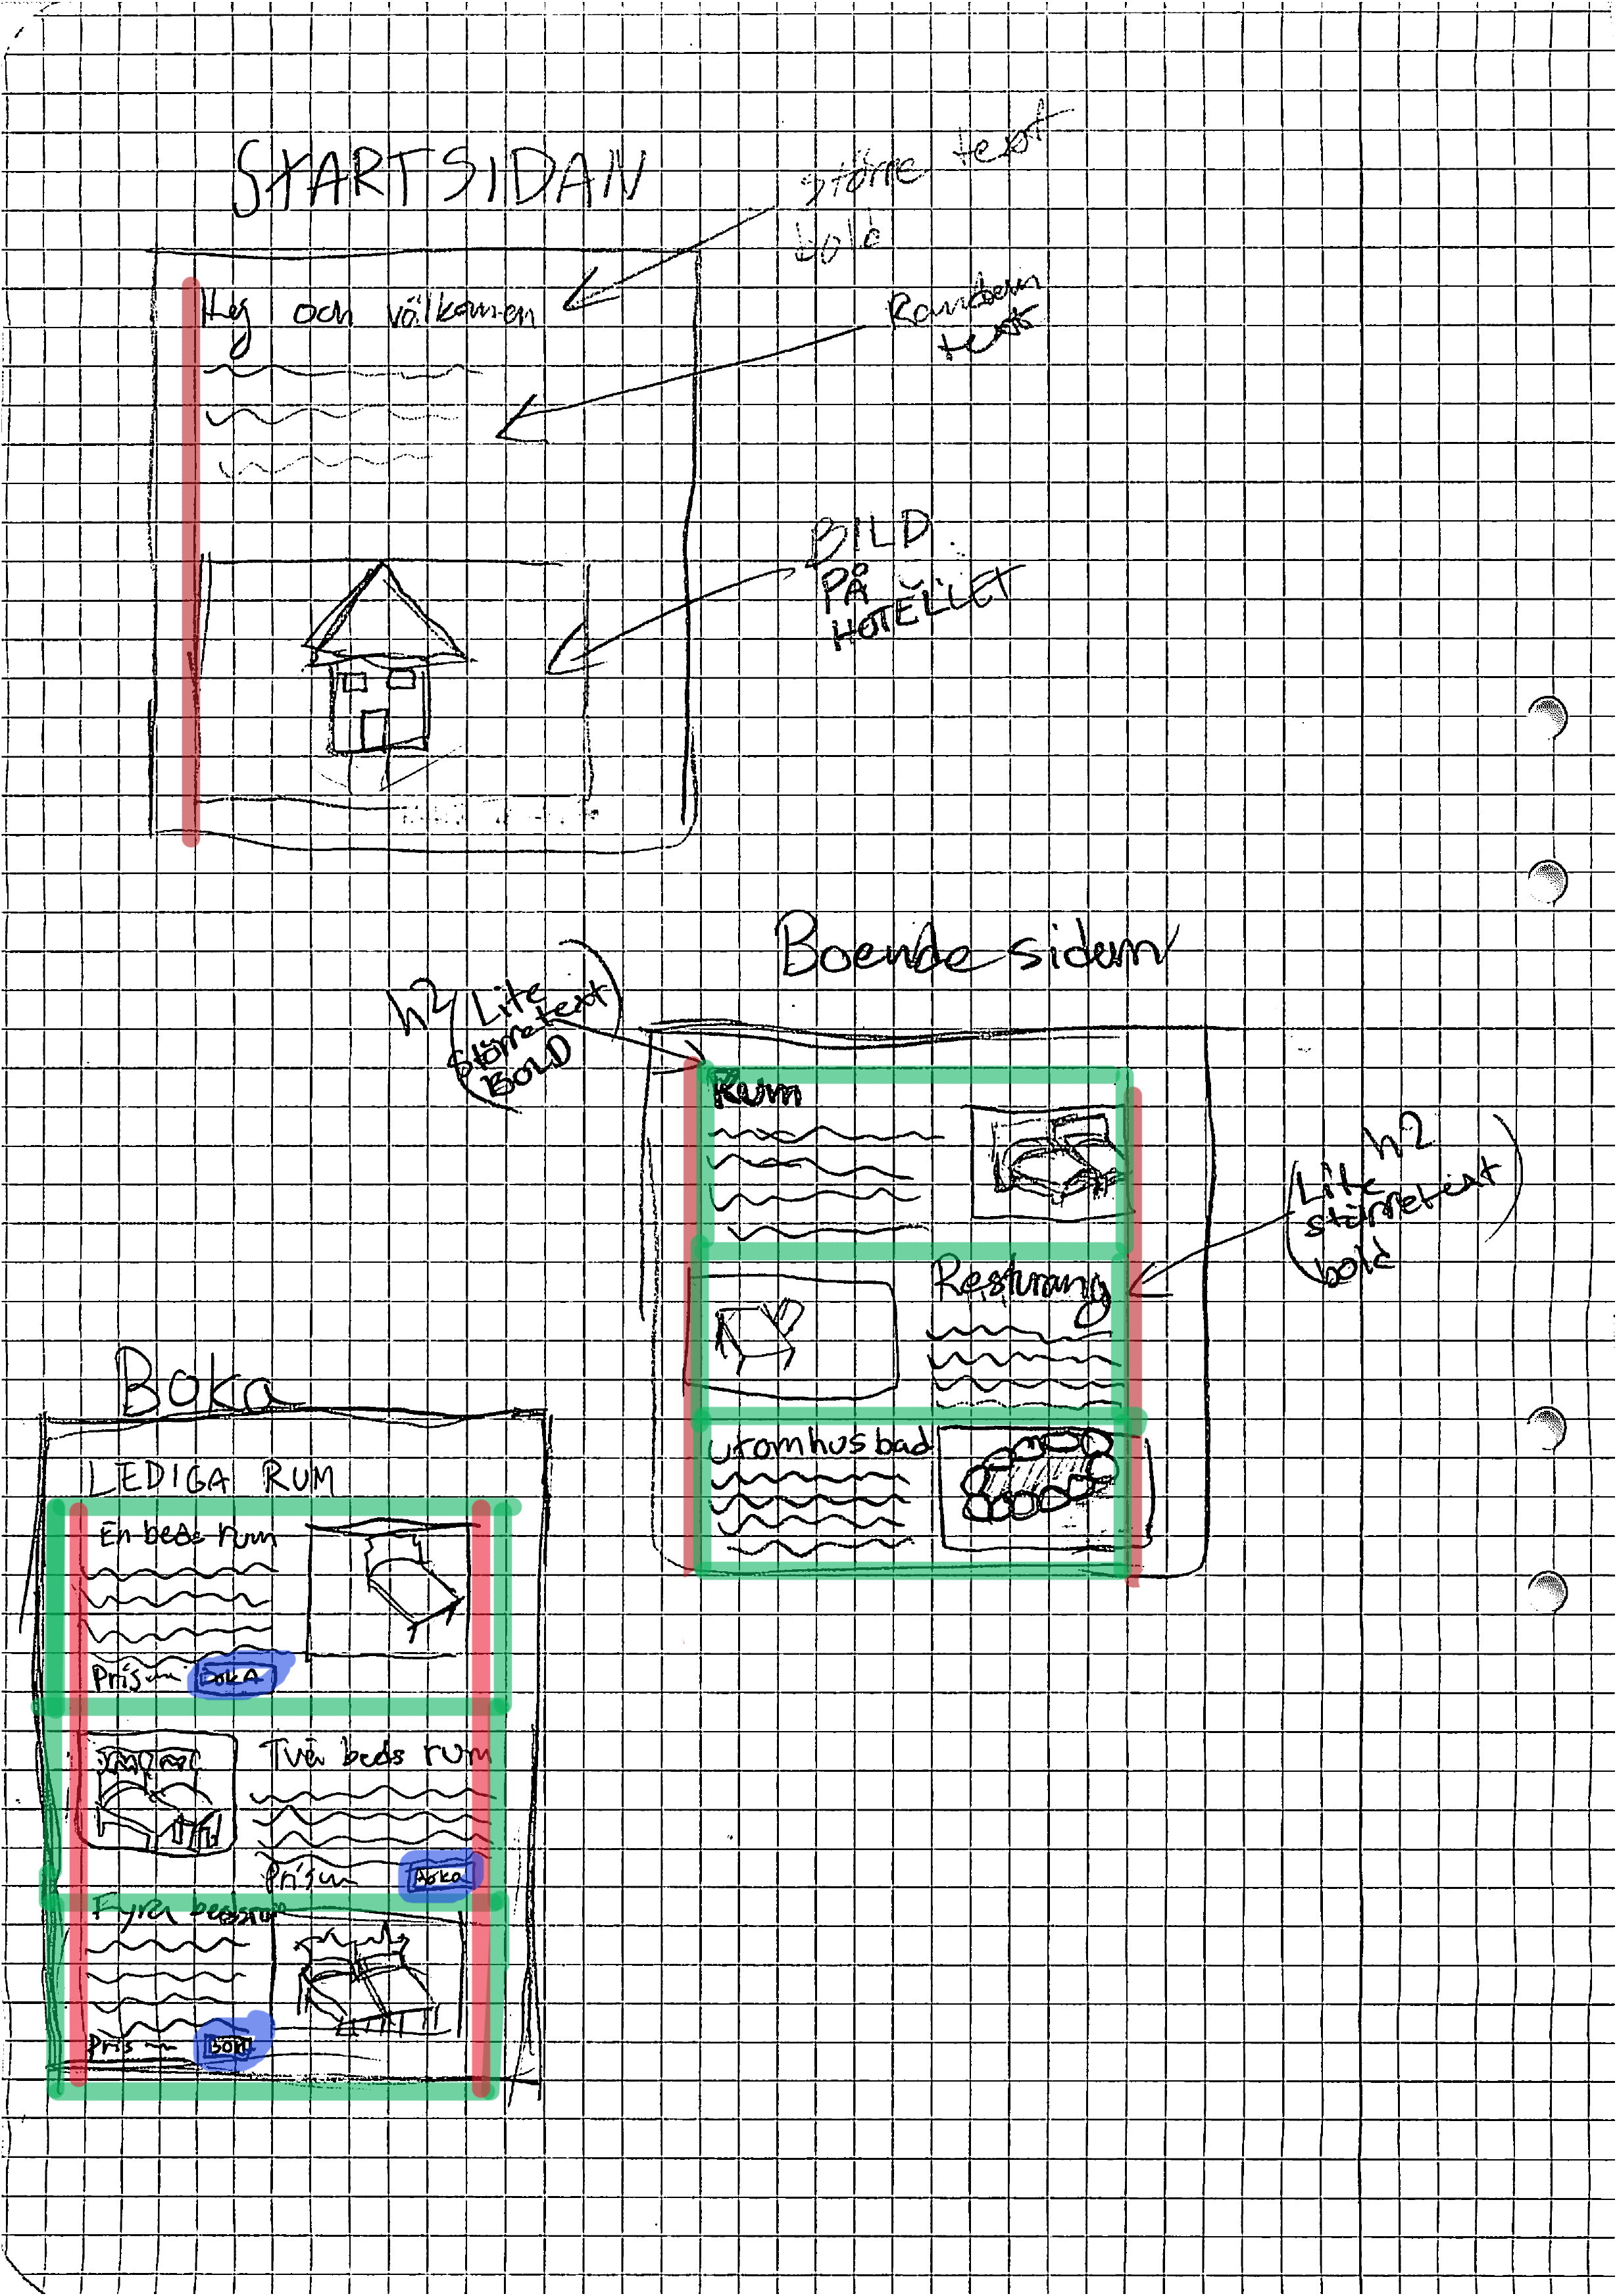 STARTSIDAN
större text
bold
Hej och välkomen
Random
text
BILD
PÅ
HOTELLET
Boende sidan
h2
Lite
större text
BOLD
Rum
h2
Lite
större text
bold
Resturang
utomhusbad
Boka
LEDIGA RUM
En beds rum
Pris
BOKA
Två beds rum
Pris
Boka
Fyra
Pris